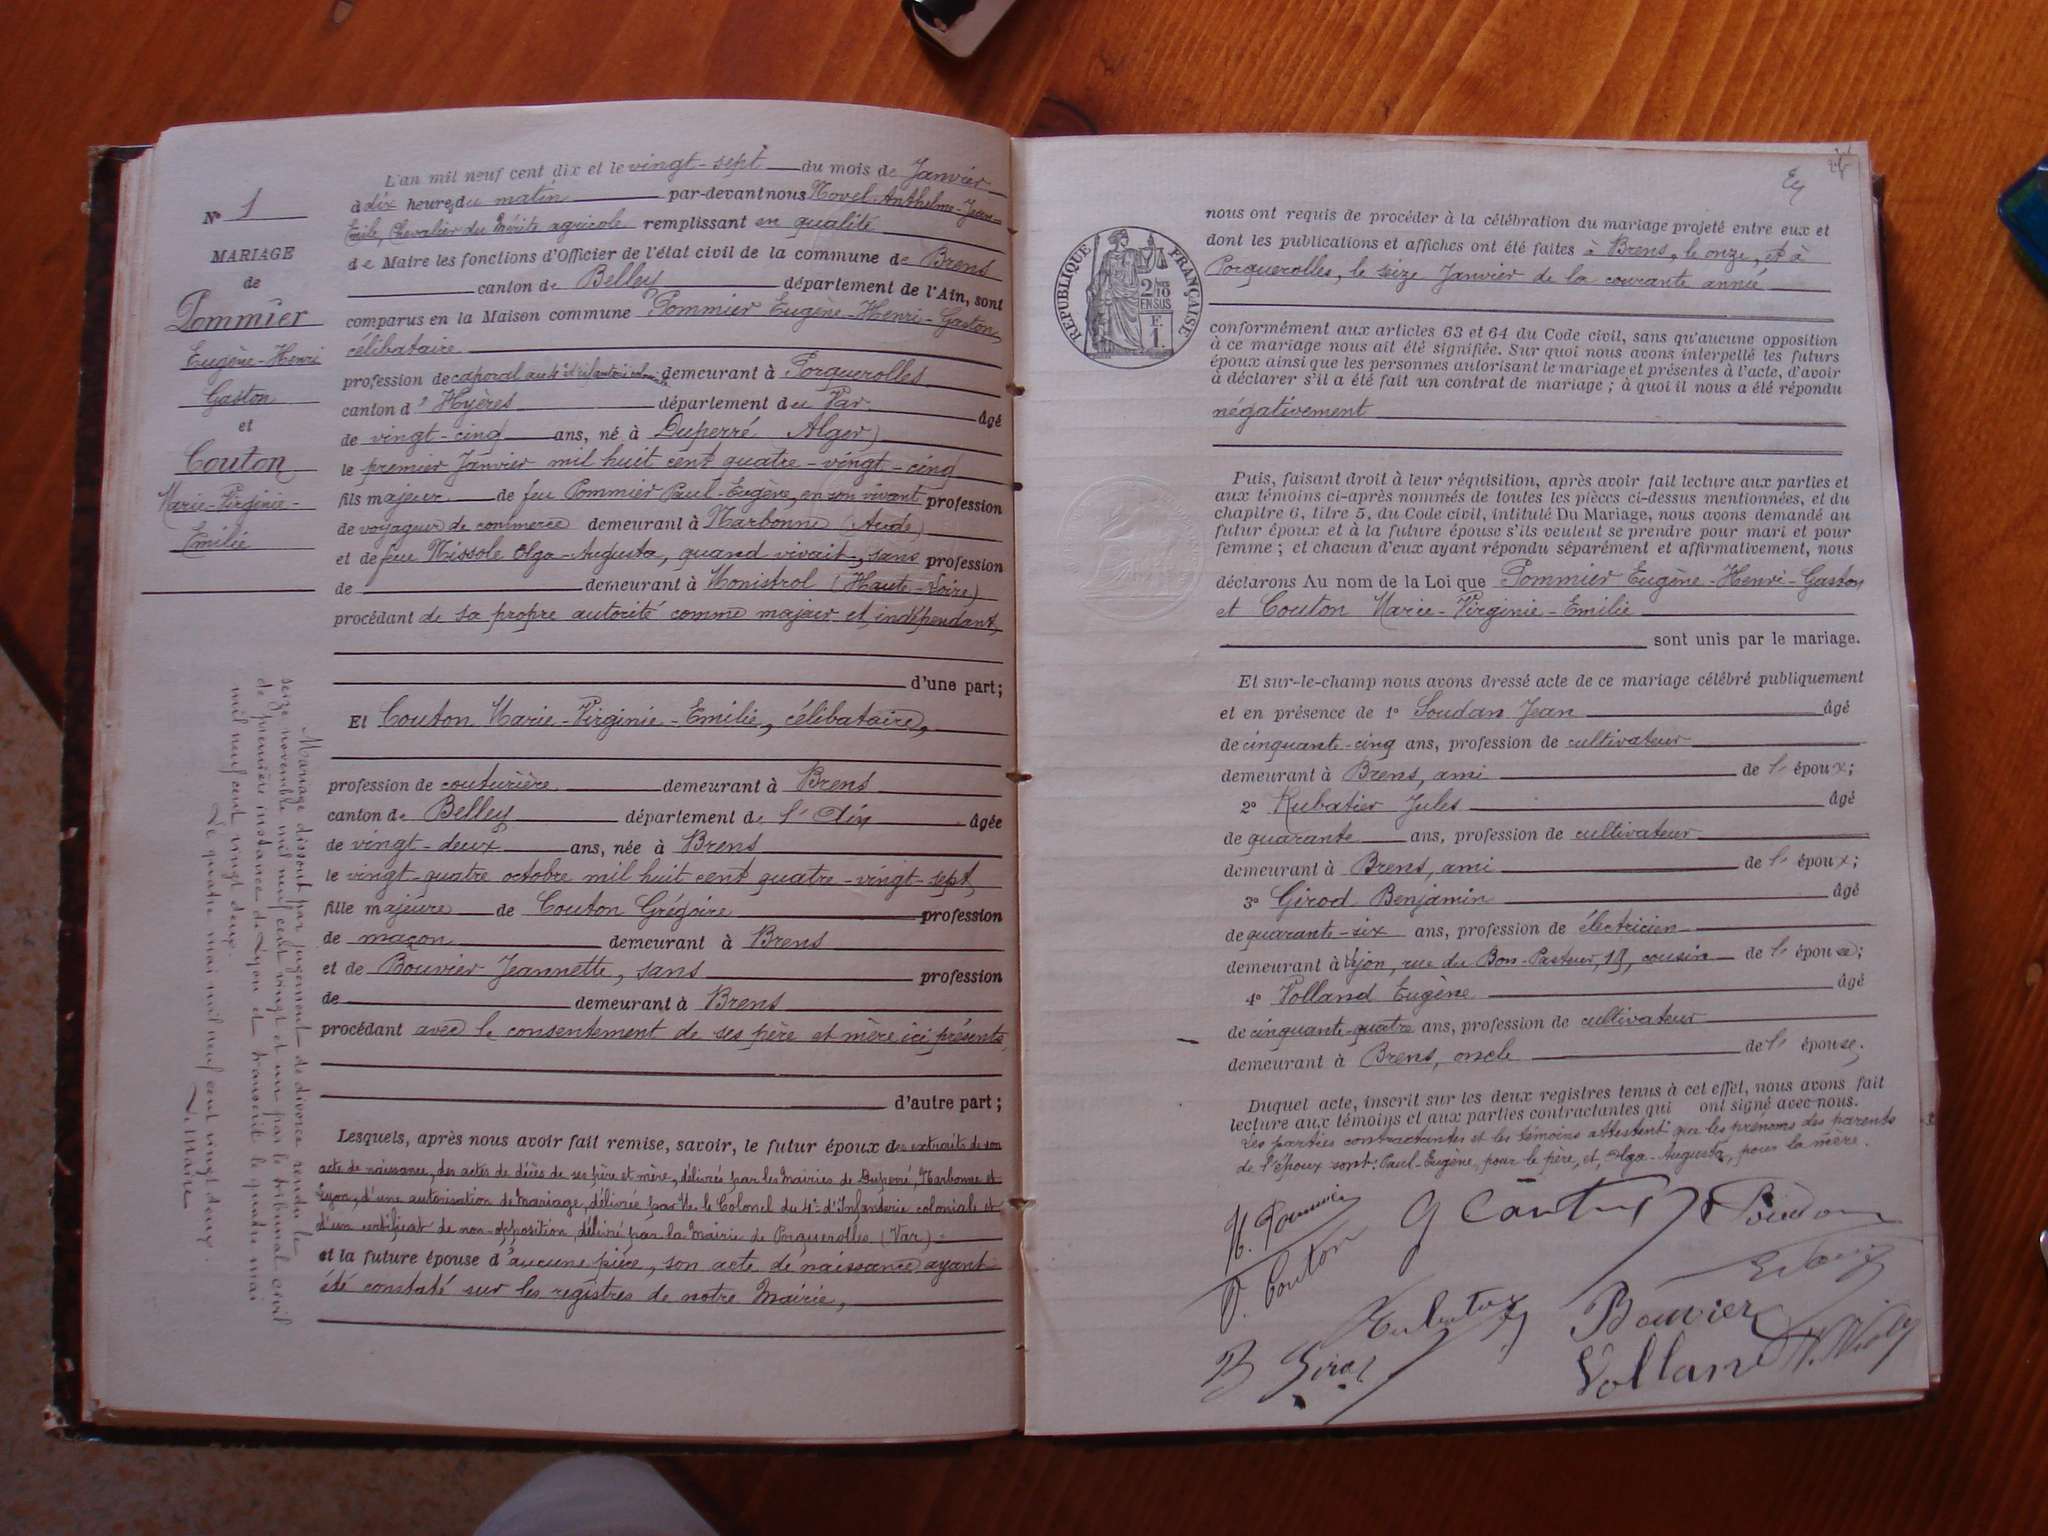 N° 1
MARIAGE
de
Pommier
Eugène-Henri
Gaston
et
Couton
Marie-Virginie-
Emilie
L'an mil neuf cent dix et le vingt-sept du mois de Janvier
à dix heures du matin par-devant nous Novel Anthelme-Jean-
Emile, Chevalier du Mérite agricole remplissant en qualité
de Maire les fonctions d'Officier de l'état civil de la commune de Brens
canton de Belley département de l'Ain, sont
comparus en la Maison commune Pommier Eugène-Henri-Gaston
célibataire
profession de caporal au 4e d'infanterie demeurant à Porquerolles
canton d'Hyères département du Var âgé
de vingt-cinq ans, né à Duperré Alger)
le premier Janvier mil huit cent quatre-vingt-cinq
fils majeur de feu Pommier Paul-Eugène, en son vivant profession
de voyageur de commerce demeurant à Narbonne (Aude)
et de feu Nissole Olga-Augusta, quand vivait, sans profession
de demeurant à Monistrol (Haute-Loire)
procédant de sa propre autorité comme majeur et indépendant,
d'une part;
Et Couton Marie-Virginie-Emilie, célibataire,
profession de couturière demeurant à Brens
canton de Belley département de l'Ain âgée
de vingt-deux ans, née à Brens
le vingt-quatre octobre mil huit cent quatre-vingt-sept,
fille majeure de Couton Grégoire profession
de maçon demeurant à Brens
et de Bouvier Jeannette, sans profession
de demeurant à Brens
procédant avec le consentement de ses père et mère ici présents,
d'autre part;
Lesquels, après nous avoir fait remise, savoir, le futur époux des extraits de son
acte de naissance, des actes de décès de ses père et mère, délivrés par les Mairies de Duperré, Narbonne et
Lyon, d'une autorisation de mariage, délivrée par M. le Colonel du 4e d'Infanterie coloniale et
d'un certificat de non-opposition, délivré par la Mairie de Porquerolles (Var)
et la future épouse d'aucune pièce, son acte de naissance ayant
été constaté sur les registres de notre Mairie,
Mariage dissout par jugement de divorce rendu le
seize novembre mil neuf cent vingt et un par le tribunal civil
de première instance de Lyon et transcrit le quatre mai
mil neuf cent vingt deux.
Le quatre mai mil neuf cent vingt deux
Le Maire
24
RÉPUBLIQUE FRANÇAISE
2/10
EN SUS
E.
1.
nous ont requis de procéder à la célébration du mariage projeté entre eux et
dont les publications et affiches ont été faites à Brens, le onze, et à
Porquerolles, le seize Janvier de la courante année
conformément aux articles 63 et 64 du Code civil, sans qu'aucune opposition
à ce mariage nous ait été signifiée. Sur quoi nous avons interpellé les futurs
époux ainsi que les personnes autorisant le mariage et présentes à l'acte, d'avoir
à déclarer s'il a été fait un contrat de mariage; à quoi il nous a été répondu
négativement
Puis, faisant droit à leur réquisition, après avoir fait lecture aux parties et
aux témoins ci-après nommés de toutes les pièces ci-dessus mentionnées, et du
chapitre 6, titre 5, du Code civil, intitulé Du Mariage, nous avons demandé au
futur époux et à la future épouse s'ils veulent se prendre pour mari et pour
femme; et chacun d'eux ayant répondu séparément et affirmativement, nous
déclarons Au nom de la Loi que Pommier Eugène-Henri-Gaston
et Couton Marie-Virginie-Emilie
sont unis par le mariage.
Et sur-le-champ nous avons dressé acte de ce mariage célébré publiquement
et en présence de 1° Soudan Jean âgé
de cinquante-cinq ans, profession de cultivateur
demeurant à Brens, ami de l'époux;
2° Rubatier Jules âgé
de quarante ans, profession de cultivateur
demeurant à Brens, ami de l'époux;
3° Girod Benjamin âgé
de quarante-six ans, profession de électricien
demeurant à Lyon, rue du Bon-Pasteur, 19, cousin de l'épouse;
4° Volland Eugène âgé
de cinquante-quatre ans, profession de cultivateur
demeurant à Brens, oncle de l'épouse.
Duquel acte, inscrit sur les deux registres tenus à cet effet, nous avons fait
lecture aux témoins et aux parties contractantes qui ont signé avec nous.
Les parties contractantes et les témoins attestent que les prénoms des parents
de l'époux sont: Paul-Eugène, pour le père, et, Olga-Augusta, pour la mère.
H. Pommier
G Couton
Soudan
V. Couton
Rubatier
Bouvier
B Girod
Volland